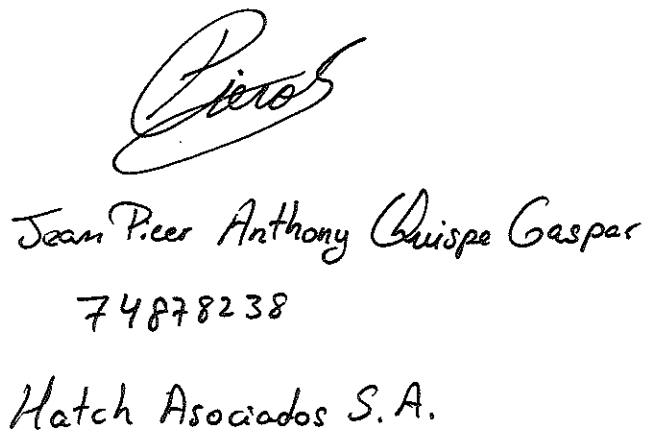 Jean Pieer Anthony Quispe Gaspar
74878238
Hatch Asociados S.A.